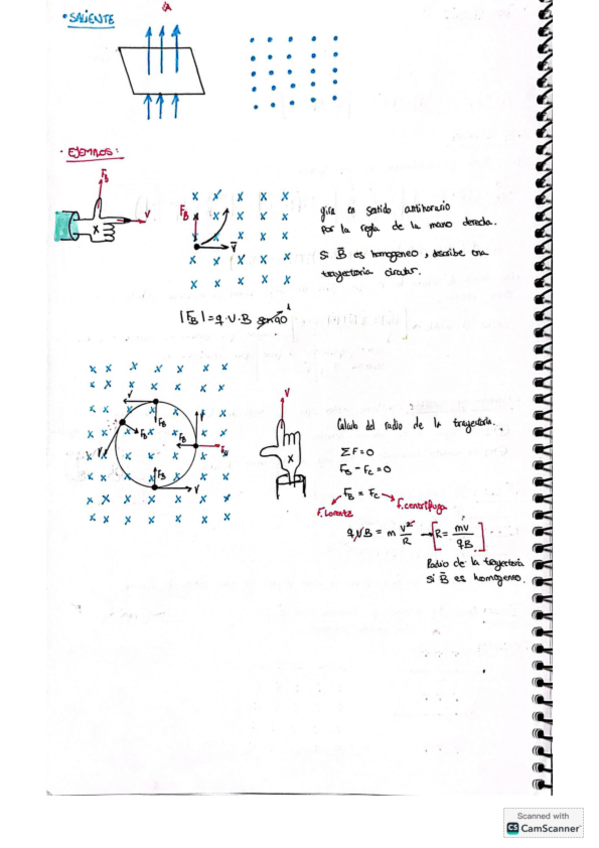 • SALIENTE
• EJEMPLOS:
F_B
V
F_B
V̄
gira en sentido antihorario
por la regla de la mano derecha.
Si B̄ es homogeneo, describe una
trayectoria circular.
|F_B| = q·v·B sen90 1
V
F_B
F_B
F_B
F_B
V
V
Calculo del radio de la trayectoria.
ΣF=0
F_B - F_C = 0
F_B = F_C
F. Lorentz
F. centrífuga
q v B = m v²/R → [R = mv/qB]
Radio de la trayectoria
si B̄ es homogeneo.
Scanned with
CS CamScanner